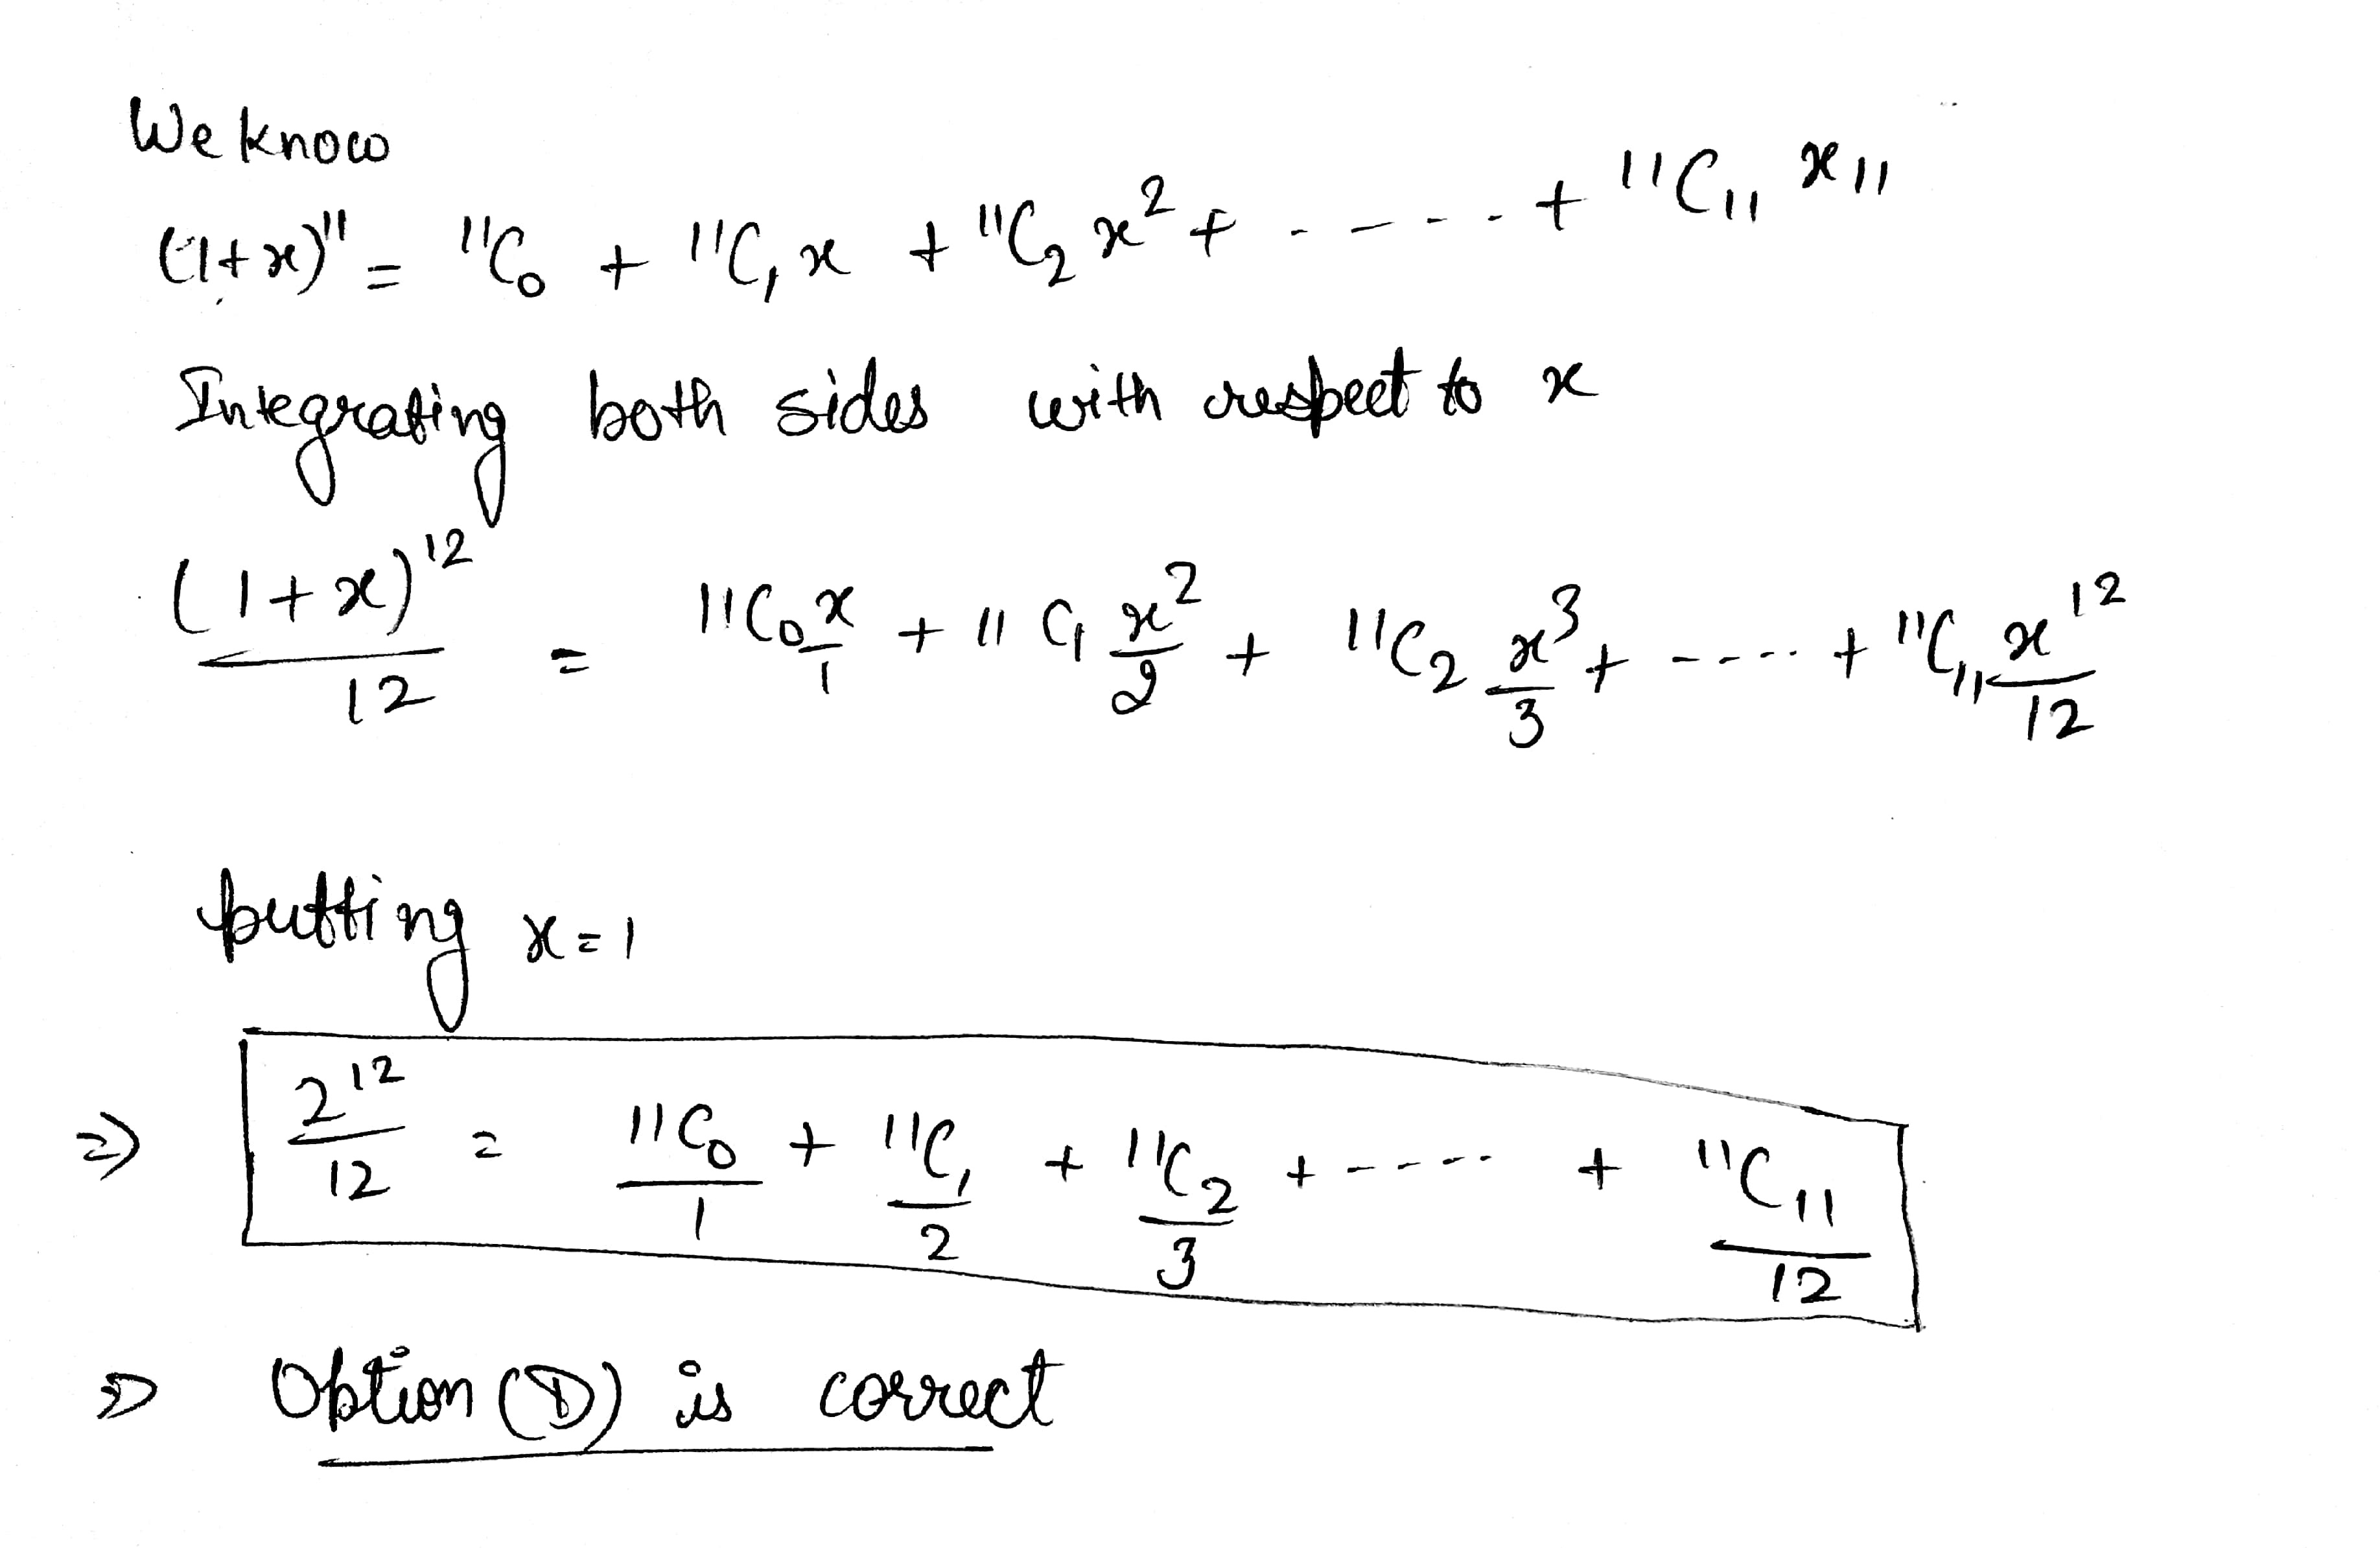 We know
(1+x)¹¹ = ¹¹C₀ + ¹¹C₁ x + ¹¹C₂ x² + - - - - . + ¹¹C₁₁ x 11
Integrating both sides with respect to x
(1+x)¹²/12 = 11C₀ x/1 + 11 C₁ x²/2 + ¹¹C₂ x³/3 + - - - - . + ¹¹C₁₁ x¹²/12
putting x=1
⇒ 2¹²/12 = 11C₀/1 + ¹¹C₁/2 + ¹¹C₂/3 + - - - - - + ¹¹C₁₁/12
⇒ Option (D) is correct